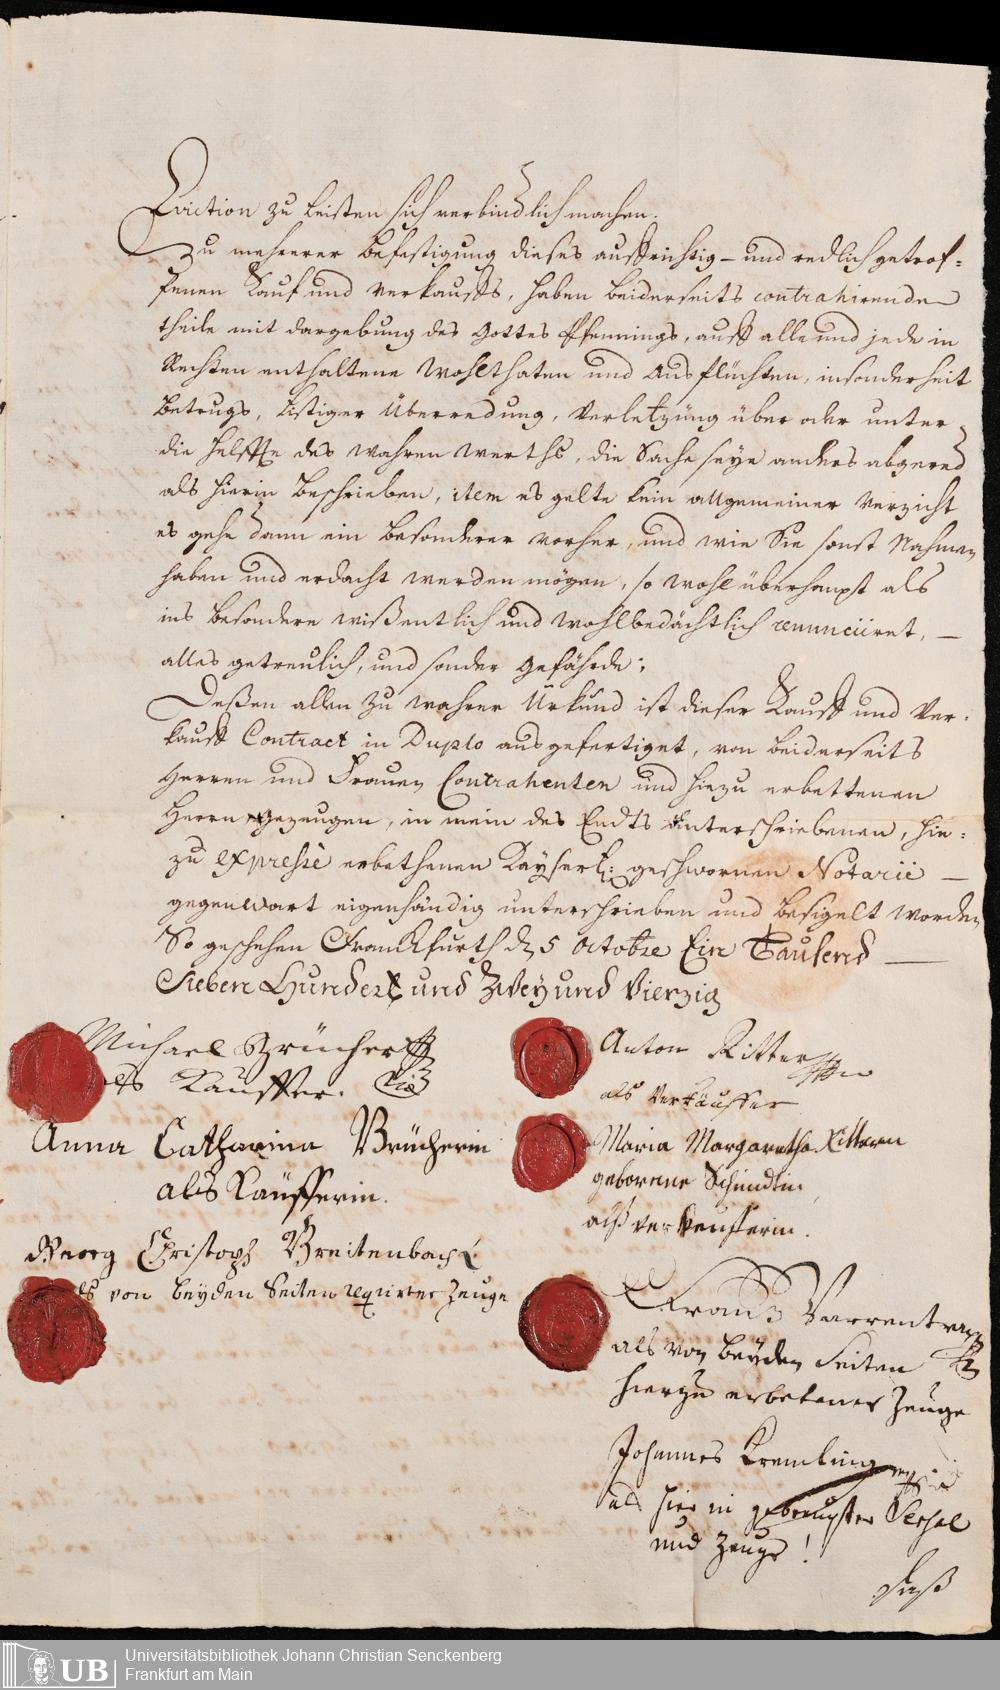 Eviction zu leisten sich verbindlich machen.
Zu mehrerer Befestigung dieses auffrichtig- und redlich getrof=
fenen Kauf und Verkauffs, haben beiderseits contrahirende
theile mit dargebung des Gottes Pfennings, auff alle und jede in
Rechten enthaltene Wohlthaten und Ausflüchten, insonderheit
Betrugs, listiger Überredung, Verletzung über oder unter
die helffte des wahren werths, die Sache seye anders abgered
als hierin beschrieben, item es gelte kein allgemeiner Verzicht
es gehe dann ein besonderer vorher, und wie Sie sonst Nahmen
haben und erdacht werden mögen, so wohl überhaupt als
ins besondere wißentlich und wohlbedächtlich renunciiret, —
alles getreulich, und sonder Gefährde.
Deßen allen zu wahrer Urkund ist dieser Kauff und Ver=
kauff Contract in Duplo ausgefertiget, von beiderseits
Herren und Frauen Contrahenten und hiezu erbettenen
Herrn gezeugen, in mein des Endts unterschriebenen, hie=
zu expresse erbethenen Kayserl: geschwornen Notarii —
gegenwart eigenhändig unterschrieben und besigelt worden
So geschehen Franckfurth d 5 Octobre Ein Tausend —
Sieben Hundert und Zwey und Vierzig
Michael Brücher
als Kauffer.
Anna Catharina Brücherin
als Käufferin.
Georg Christoph Breitenbach
als von beyden Seiten requirter Zeuge
Anton Ritter
als Verkäuffer
Maria Margaretha Rittern
geborene Schindlin
als verkeufferin.
Frantz Varrentrapp
als von beyden Seiten
hierzu erbetener Zeuge
Johannes Kremling
als hier in gebrauchter
und Zeuge!
Daß
UB
Universitätsbibliothek Johann Christian Senckenberg
Frankfurt am Main